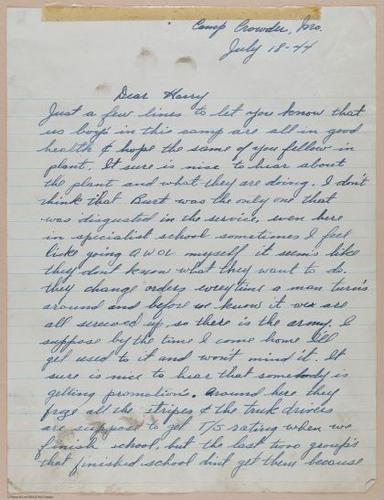 Camp Crowder, Mo.
July 18-44
Dear Harry
Just a few lines to let you know that
us boys in this camp are all in good
health & hope the same of you fellow in
plant. It sure is nice to hear about
the plant and what they are doing. I don't
think that Burt was the only one that
was disgusted in the service, even here
in specialist school sometimes I feel
like going AWOL myself it seems like
they don't know what they want to do.
they change orders everytime a man turns
around and before we know it we are
all screwed up, so there is the army. I
suppose by the time I come home I'll
get used to it and won't mind it. It
sure is nice to hear that somebody is
getting promotions. Around here they
froze all the stripes & the truk drivers
are suppose to get T/5 rating when we
finish school, but the last two groups
that finished school dint get them because